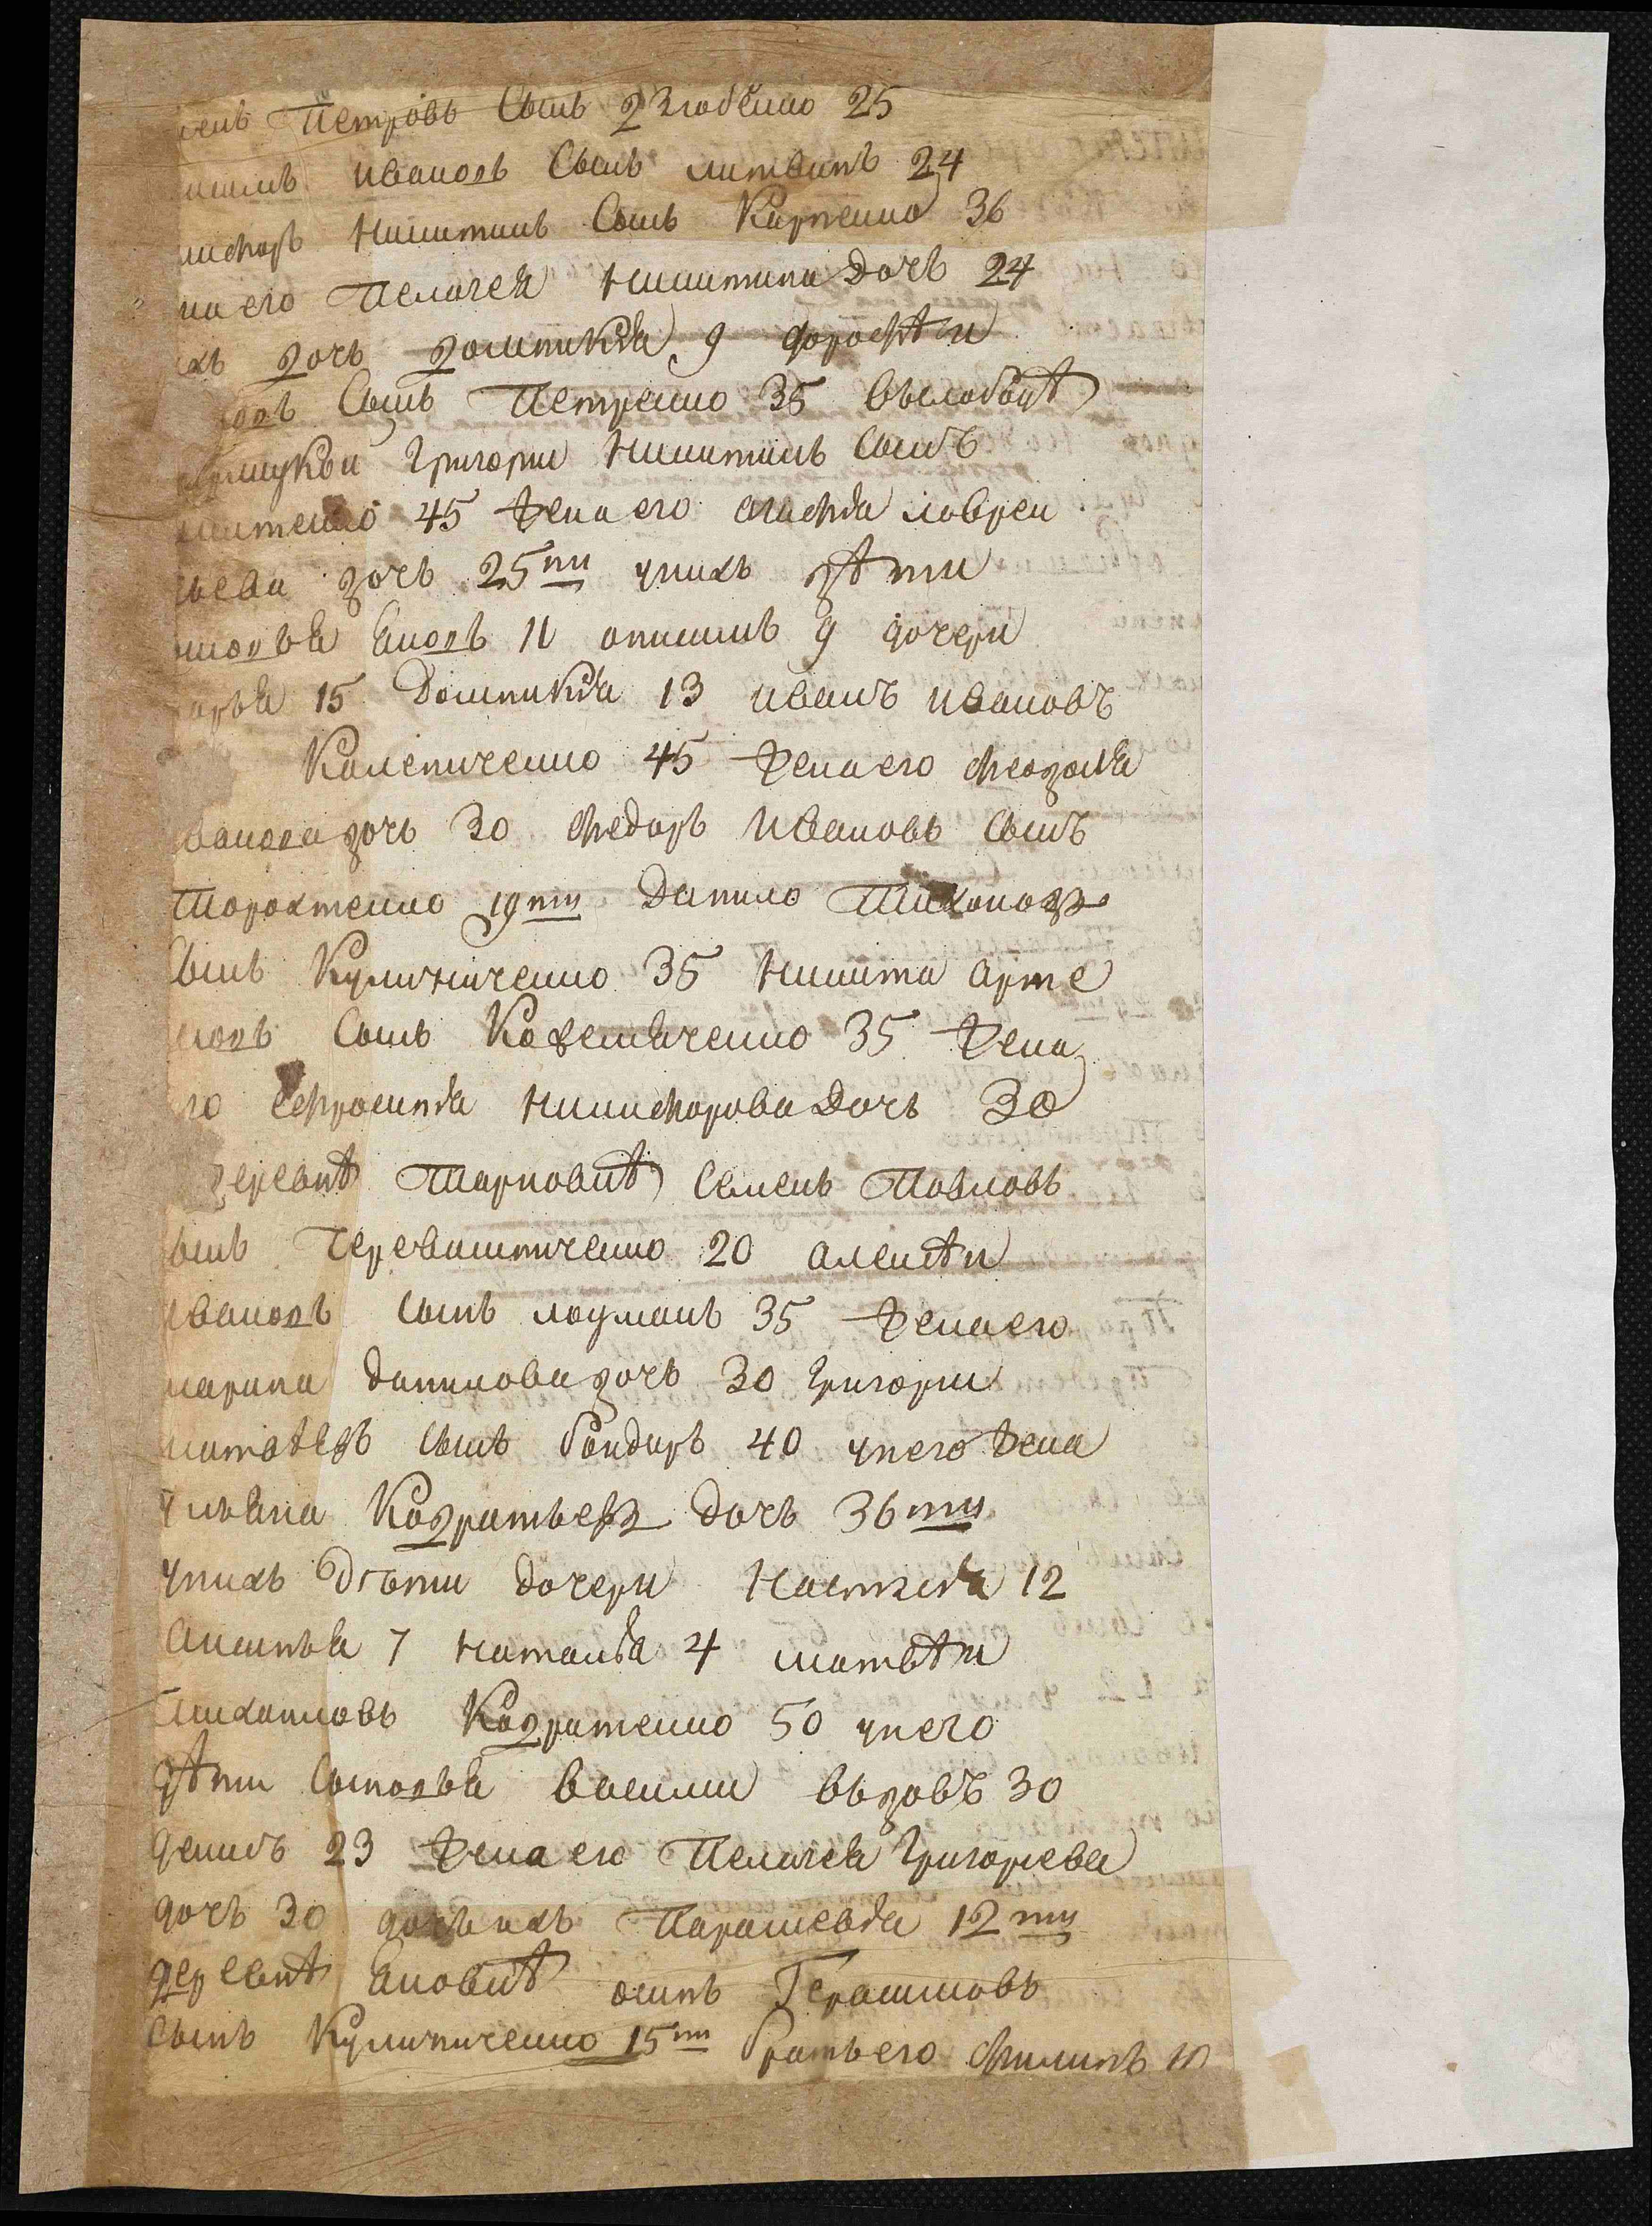 Петровъ Сынъ 25
ивановъ Сынъ литвинъ 24
Никитинъ Сынъ Карпенко 36
на его Пелагея Никитина Дочъ 24
ихъ дочъ домникия 9 дорофѣи
Сынъ Петренко 35 Въслободѣ
Григорий Никитинъ Сынъ
45 жена его агафия лаврен
тьева дочъ 25ти унихъ дѣти
яковъ 11 онисимъ 9 дочери
15 Домникия 13 иванъ ивановъ
Калениченко 45 жена его феодосия
иванова дочъ 30 федоръ Ивановъ сынъ
Торохтенко 19ти Данило Тихоновъ
Сынъ Куличниченко 35 Никита арте
мовъ Сынъ Кожемяченко 35 жена
его Ефросиния Никифорова Дочъ 30
деревнѣ Тарновкѣ Семенъ Павловъ
сынъ 20 алексѣи
ивановъ сынъ лоуманъ 35 жена его
марина данилова дочъ 30 григорий
матвѣевъ сынъ бондаръ 40 унего жена
ульяна Кодратьева дочъ 36ти
унихъ дѣти дочери Настасия 12
Аксинья 7 Наталия 4 матвѣи
михаиловъ Кодратенко 50 унего
дѣти Сыновья василий вдовъ 30
денисъ 23 жена его Пелагея Григорьева
дочъ 30 дочъ ихъ Парасковия 12ти
деревнѣ Еновкѣ осипъ Герасимовъ
сынъ Куличниченко 15ти братъ его филипъ 10